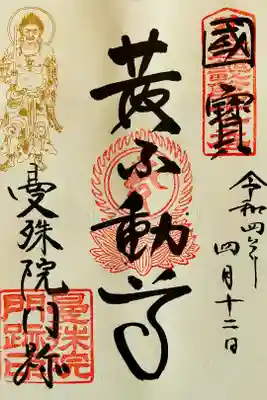 國寳
令和四年
四月十二日
黄不動尊
曼殊院門跡
曼殊院
門跡印